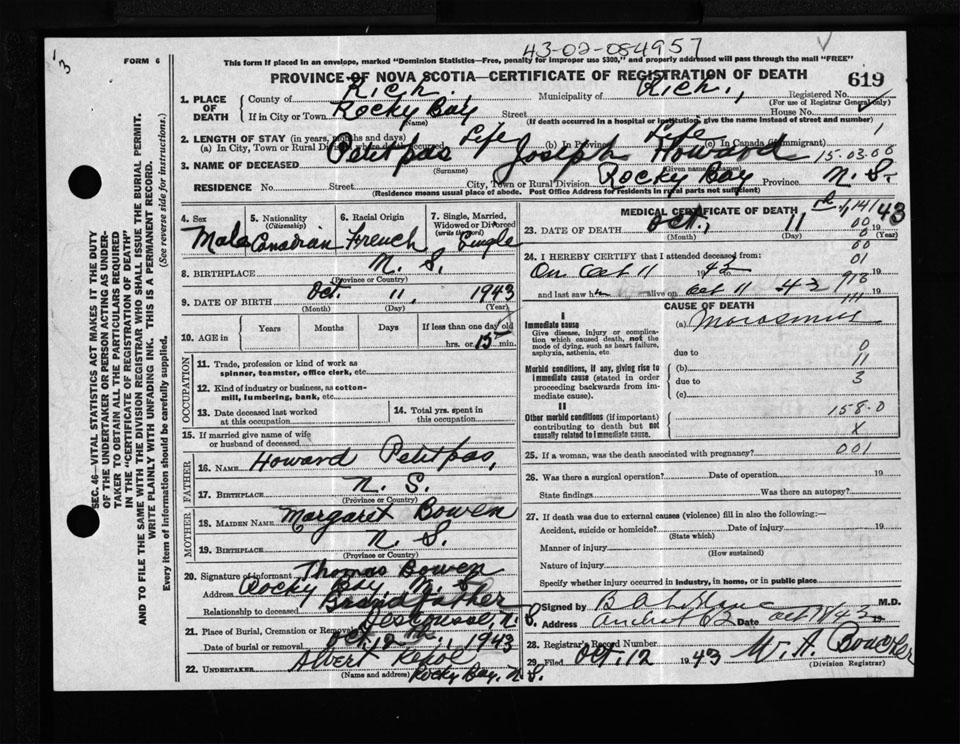 43-02-084957
1
3
FORM 6
This form if placed in an envelope, marked "Dominion Statistics—Free, penalty for improper use $300," and properly addressed will pass through the mail "FREE"
PROVINCE OF NOVA SCOTIA—CERTIFICATE OF REGISTRATION OF DEATH
619
1. PLACE OF DEATH
County of Rich. Municipality of Rich., Registered No.
(For use of Registrar General only)
If in City or Town Rocky Bay Street House No.
(Name) (If death occurred in a hospital or institution, give the name instead of street and number)
2. LENGTH OF STAY (in years, months and days)
(a) In City, Town or Rural Division where death occurred Life (b) In Province Life (c) In Canada (if immigrant) 1
3. NAME OF DECEASED Petitpas Joseph Howard 15-03-00
(Surname) (Given name or names)
RESIDENCE No. Street City, Town or Rural Division Rocky Bay Province N. S.
(Residence means usual place of abode. Post Office Address for Residents in rural parts not sufficient)
4. Sex Male
5. Nationality (Citizenship) Canadian
6. Racial Origin French
7. Single, Married, Widowed or Divorced (write the word) Single
8. BIRTHPLACE N. S.
(Province or Country)
9. DATE OF BIRTH Oct. 11, 1943
(Month) (Day) (Year)
10. AGE in Years Months Days If less than one day old
hrs. or 15 min.
OCCUPATION
11. Trade, profession or kind of work as spinner, teamster, office clerk, etc.
12. Kind of industry or business, as cotton-mill, lumbering, bank, etc.
13. Date deceased last worked at this occupation
14. Total yrs. spent in this occupation
15. If married give name of wife or husband of deceased
FATHER
16. NAME Howard Petitpas,
17. BIRTHPLACE N. S.
(Province or Country)
MOTHER
18. MAIDEN NAME Margaret Bowen
19. BIRTHPLACE N. S.
(Province or Country)
20. Signature of informant Thomas Bowen
Address Rocky Bay, N. S.
Relationship to deceased Grandfather
21. Place of Burial, Cremation or Removal Descousse, N. S.
Date of burial or removal Oct. 12th, 1943
22. UNDERTAKER Albert
(Name and address) Rocky Bay, N. S.
MEDICAL CERTIFICATE OF DEATH
23. DATE OF DEATH Oct. 11 1943
(Month) (Day) (Year)
24. I HEREBY CERTIFY that I attended deceased from:
On Oct 11 1943 19
and last saw h alive on Oct 11 43 19
00
00
01
910
111
CAUSE OF DEATH
I
Immediate cause
Give disease, injury or complication which caused death, not the mode of dying, such as heart failure, asphyxia, asthenia, etc.
(a) Marasmus
due to
Morbid conditions, if any, giving rise to immediate cause (stated in order proceeding backwards from immediate cause).
(b)
due to
(c)
0
11
3
II
Other morbid conditions (if important) contributing to death but not causally related to immediate cause.
158.0
X
25. If a woman, was the death associated with pregnancy? 001
26. Was there a surgical operation? Date of operation 19
State findings Was there an autopsy?
27. If death was due to external causes (violence) fill in also the following:—
Accident, suicide or homicide? Date of injury 19
(State which)
Manner of injury
(How sustained)
Nature of injury
Specify whether injury occurred in industry, in home, or in public place
Signed by M.D.
Address Date Oct 43 19
28. Registrar's Record Number
29. Filed Oct. 12 1943
(Division Registrar)
SEC. 46—VITAL STATISTICS ACT MAKES IT THE DUTY
OF THE UNDERTAKER OR PERSON ACTING AS UNDER-
TAKER TO OBTAIN ALL THE PARTICULARS REQUIRED
IN THE "CERTIFICATE OF REGISTRATION OF DEATH"
AND TO FILE THE SAME WITH THE DIVISION REGISTRAR WHO SHALL ISSUE THE BURIAL PERMIT.
WRITE PLAINLY WITH UNFADING INK. THIS IS A PERMANENT RECORD.
Every item of information should be carefully supplied. (See reverse side for instructions.)